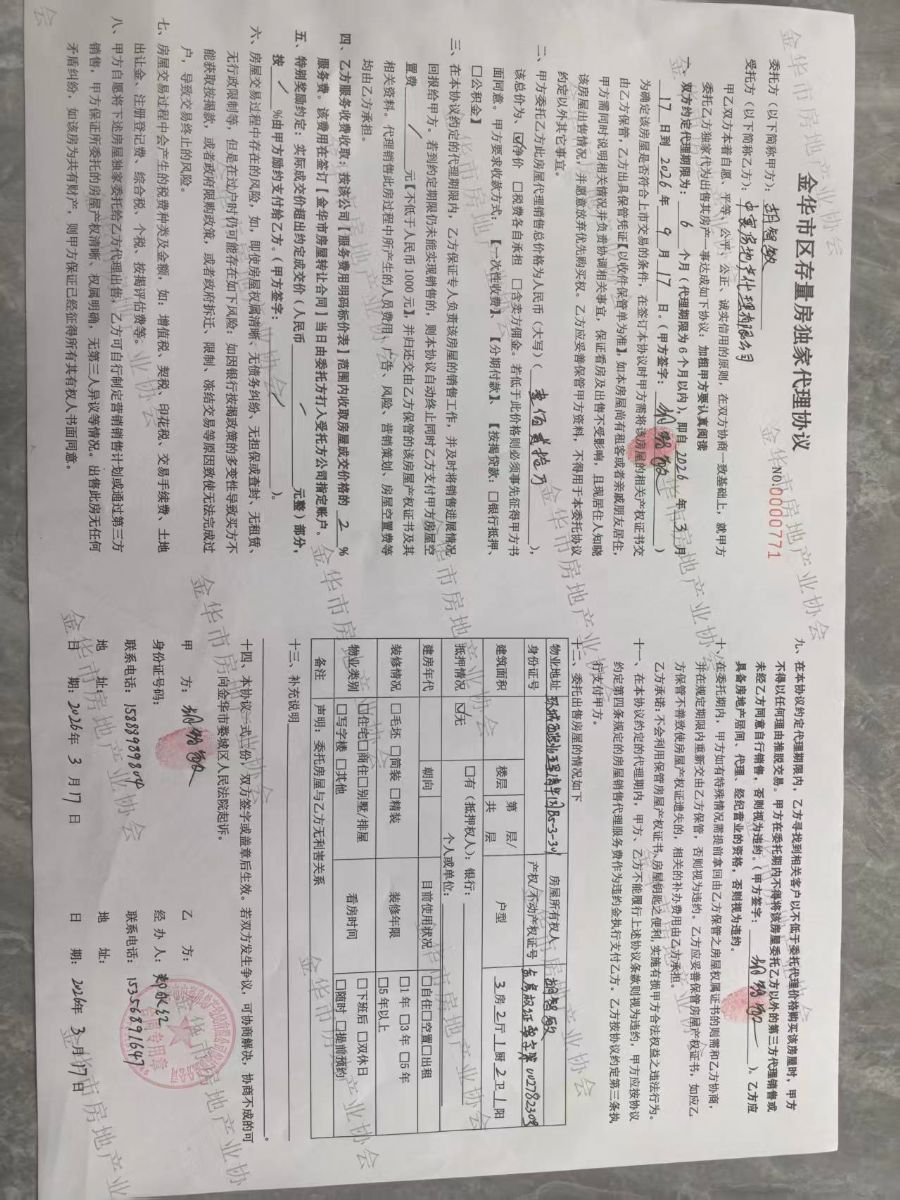 金华市区存量房独家代理协议
NO.0000771
委托方(以下简称甲方):胡智敏
受托方(以下简称乙方):中寰房地产代理有限公司
甲乙双方本着自愿、平等、公平、公正、诚实信用的原则,在双方协商一致基础上,就甲方
委托乙方独家代为出售其房产一事达成如下协议:加粗甲方要认真阅读
一、双方约定代理期限为:6个月(代理期限为6个月以内),即自2026年3月
17日到2026年9月17日。(甲方签字:胡智敏)
为确定该房屋是否符合上市交易的条件,在签订本协议时甲方需将该房屋的相关产权证书交
由乙方保管,乙方出具保管凭证【以收件保管单为准】。如本房屋尚有租客或者亲戚朋友居住,
甲方需同时说明相关情况并负责协调相关事宜,保证看房及出售不受影响,且现居住人知晓
该房屋出售情况,并愿意放弃优先购买权。乙方应妥善保管甲方资料,不得用于本委托协议
约定以外其它事宜。
二、甲方委托乙方此房屋代理销售总价格为人民币(大写)(壹佰贰拾万),
该总价为:☑净价 □税费各自承担 □含卖方佣金。若低于此价格则必须事先征得甲方书
面同意。甲方要求收款方式:【一次性收费】、【分期付款】、【按揭贷款:□银行抵押、
□公积金】
三、在本协议约定的代理期限内,乙方保证专人负责该房屋的销售工作,并及时将销售进展情况
回报给甲方。若到约定期限仍未能实现销售的,则本协议自动终止同时乙方支付甲方房屋空
置费 / 元【不低于人民币1000元】,并归还交由乙方保管的该房屋产权证书及其
相关资料。代理销售此房过程中所产生的人员费用、广告、风险、营销策划、房屋空置费等
均由乙方承担。
四、乙方服务收费收取:按该公司【服务费用明码标价表】范围内收取房屋成交价格的 2 %
服务费。该费用在签订【金华市房屋转让合同】当日由委托方打入受托方公司指定账户。
五、特别奖励约定:实际成交价超出约定成交价(人民币 / 元整)部分,
按 / %由甲方励约支付给乙方。(甲方签字: / )。
六、房屋交易过程中存在的风险,如,即使房屋权属清晰、无债务纠纷、无担保或查封、无租赁、
无行政限制等,但是在过户时仍可能存在如下风险:如因银行按揭政策的多变性导致买方不
能获取按揭款,或者政府限购政策,或者政府拆迁、限制、冻结交易等原因致使无法完成过
户,导致交易终止的风险。
七、房屋交易过程中会产生的税费种类及金额,如:增值税、契税、印花税、交易手续费、土地
出让金、注册登记费、综合税、个税、按揭评估费等。
八、甲方自愿将下述房屋独家委托给乙方代理出售,乙方可自行制定营销销售计划或通过第三方
销售,甲方保证所委托的房屋产权清晰、权属明确,无第三人异议等情况。出售此房无任何
矛盾纠纷,如该房为共有财产,则甲方保证已经征得所有共有权人书面同意。
九、在本协议约定代理期限内,乙方寻找到相关客户以不低于委托代理价格购买该房屋时,甲方
不得以任何理由推脱交易。甲方在委托期内不得将该房屋委托乙方以外的第三方代理销售或
未经乙方同意自行销售,否则视为违约。(甲方签字:胡智敏)。乙方应
具备房地产居间、代理、经纪营业的资格,否则视为违约。
十、在委托期内,甲方如有特殊情况需提前拿回由乙方保管之房屋权属证书的则需和乙方协商,
并在规定期限内重新交由乙方保管,否则视为违约。乙方应妥善保管房屋产权证书,如应乙
方保管不善致使房屋产权证遗失的,相关的补办费用由乙方承担。
乙方承诺:不会利用保管房屋产权证书、房屋钥匙之便利,实施有损甲方合法权益之违法行为。
十一、在本协议约定的代理期内,甲方、乙方不能履行上述协议条款则视为违约,甲方应按协议
约定第四条规定的房屋销售代理服务费作为违约金执行支付乙方。乙方按协议约定第三条执
行支付甲方。
十二、委托出售房屋的情况如下
物业地址 B5-3-301 房屋所有权人: 胡智敏
身份证号 产权/不动产权证号 002782308
建筑面积 楼层 第 层/共 层 户型 3房2厅1厨2卫1阳
抵押情况 ☑无 □有(抵押权人):银行: 个人或单位:
建房年代 朝向 目前使用状况 □自住□空置□出租
装修情况 □毛坯 □简装 □精装 装修年限 □1年□3年□5年 □5年以上
物业类别 □住宅□商住□别墅/排屋 □写字楼 □其他 看房时间 □下班后 □双休日 □随时 □提前预约
备注 声明:委托房屋与乙方无利害关系
十三、补充说明
十四、本协议一式二份,双方签字或盖章后生效。若双方发生争议,可协商解决,协商不成的可
向金华市婺城区人民法院起诉。
甲 方:胡智敏 乙 方:
身份证号码: 经 办 人:
联系电话:15888989804 联系电话:15356891647
地 址: 地 址:
日 期:2026年3月17日 日 期:2026年3月17日
金华市房地产业协会